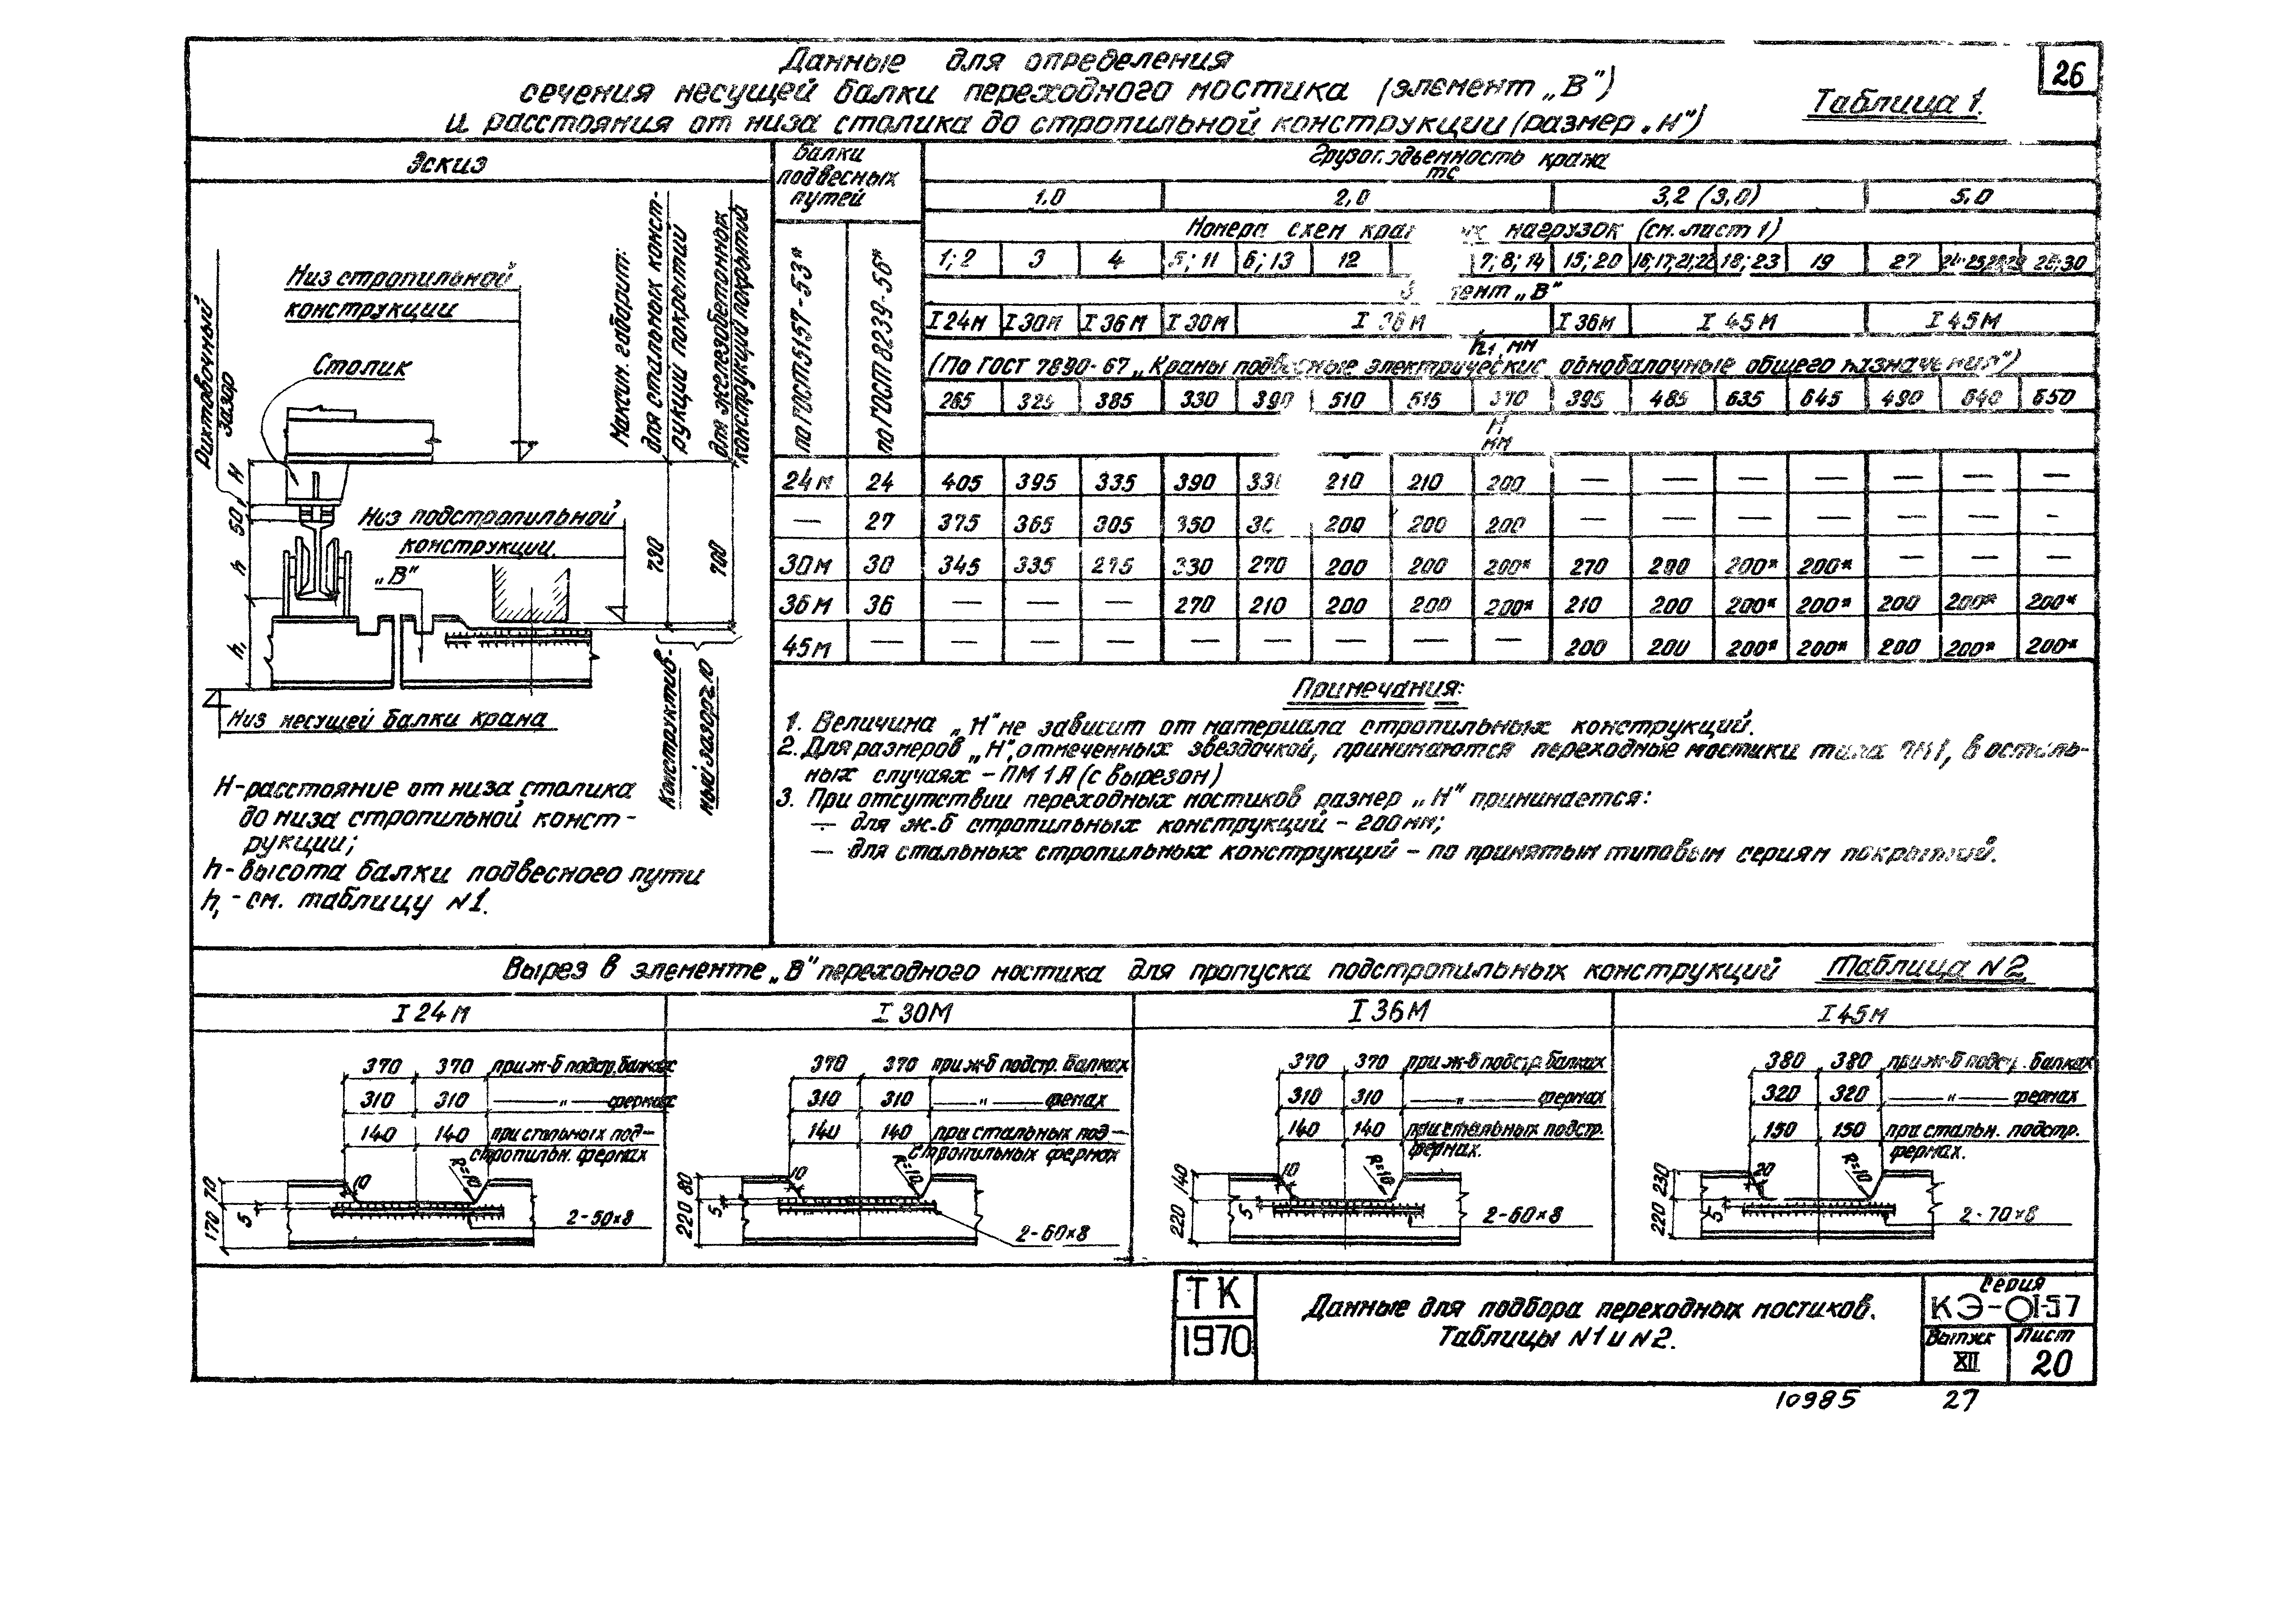 Данные для определения
сечения несущей балки переходного мостика (элемент „В")
и расстояния от низа столика до стропильной конструкции (размер „Н")
Таблица 1.
26
Эскиз
Балки подвесных путей
по ГОСТ 5157-53*
по ГОСТ 8239-56*
Грузоподъемность крана
тс
1,0 2,0 3,2 (3,0) 5,0
Номера схем нагрузок (см. лист 1)
1; 2 3 4 5; 11 6; 13 12 7; 8; 14 15; 20 16;17;21;22 18; 23 19 27
„В"
I 24М I 30М I 36М I 30М I 36М I 36М I 45М I 45М
h1, мм
(По ГОСТ 7890-67 „Краны подвесные электрические однобалочные общего назначения")
265 325 385 330 390 510 515 370 395 485 635 645 490 640 650
Н
мм
24М 24 405 395 335 390 210 210 200 — — — — — — —
— 27 375 365 305 350 200 200 200 — — — — — — -
30М 30 345 335 275 330 270 200 200 200* 270 200 200* 200* — — —
36М 36 — — — 270 210 200 200 200* 210 200 200* 200* 200 200* 200*
45М — — — — — — — — — 200 200 200* 200* 200 200* 200*
Рихтовочный зазор
Низ стропильной
конструкции
Столик
Максим. габарит:
для стальных конст-
рукций покрытий
для железобетонных
конструкций покрытий
Н
50
h
h1
Низ подстропильной
конструкции
„В"
730
700
Конструктив-
ный зазор≥10
Низ несущей балки крана
Н-расстояние от низа столика
до низа стропильной конст-
рукции;
h-высота балки подвесного пути
h1 - см. таблицу N1.
Примечания:
1. Величина „Н" не зависит от материала стропильных конструкций.
2. Для размеров „Н", отмеченных звездочкой, принимаются переходные мостики типа ПМ1, в осталь-
ных случаях - ПМ 1А (с вырезом)
3. При отсутствии переходных мостиков размер „Н" принимается:
— для ж.б стропильных конструкций - 200 мм;
— для стальных стропильных конструкций - по принятым типовым сериям покрытий.
Вырез в элементе „В" переходного мостика для пропуска подстропильных конструкций Таблица N2
I 24М I 30М I 36М I 45М
370 370 при ж-б подстр. балках
310 310 — " — фермах
140 140 при стальных под-
стропильн. фермах
10 R=10
70
170
5
2-50×8
370 370 при ж-б подстр. балках
310 310 — " — фемах
140 140 при стальных под-
стропильных фермах
10 R=10
80
220
5
2-60×8
370 370 при ж-б подстр. балках
310 310 — " — фермах
140 140 при стальных подстр.
фермах.
10 R=10
140
220
5
2-60×8
380 380 при ж-б подстр. балках
320 320 — " — фермах
150 150 при стальн. подстр.
фермах.
20 R=10
230
220
5
2-70×8
ТК
1970
Данные для подбора переходных мостиков.
Таблицы N1 и N2.
Серия
КЭ-01-57
Выпуск Лист
XII 20
10985 27